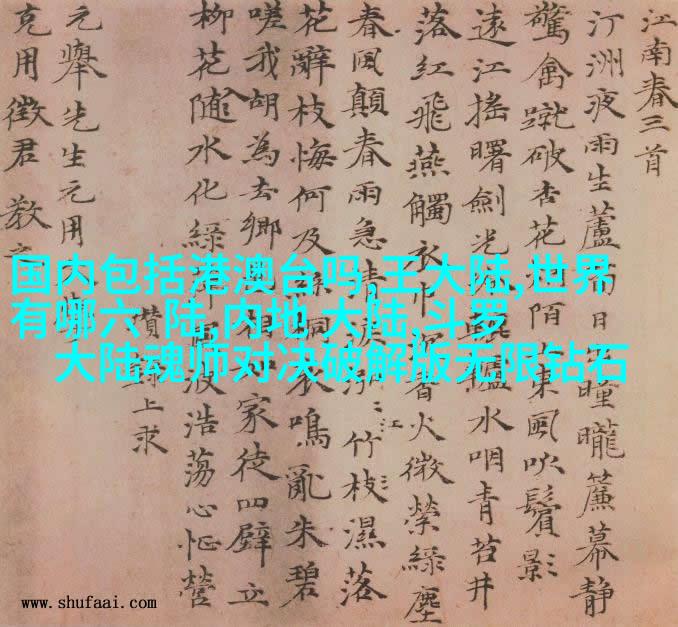 江南春三首
汀洲夜雨生蘆日出曈曨簾幕静
驚禽蹴破杏花陌東風吹鬢影
遠江搖曙劍光水咽青苔井
落紅飛燕觸衣巾香火微縈綠塵
春風顛春雨急清淚泓泓江竹枝濕落
花辭枝悔何及桐哀鳴亂朱碧
嗟我胡為去鄉家徒四壁立
柳花隨水化綠波浩蕩心怔營
瓚上求
元舉先生元用
克用徵君教之
国内包括港澳台吗,王大陆,世界
有哪六 陆,内地 大陆,斗罗
大陆魂师对决破解版无限钻石
www.shufaai.com